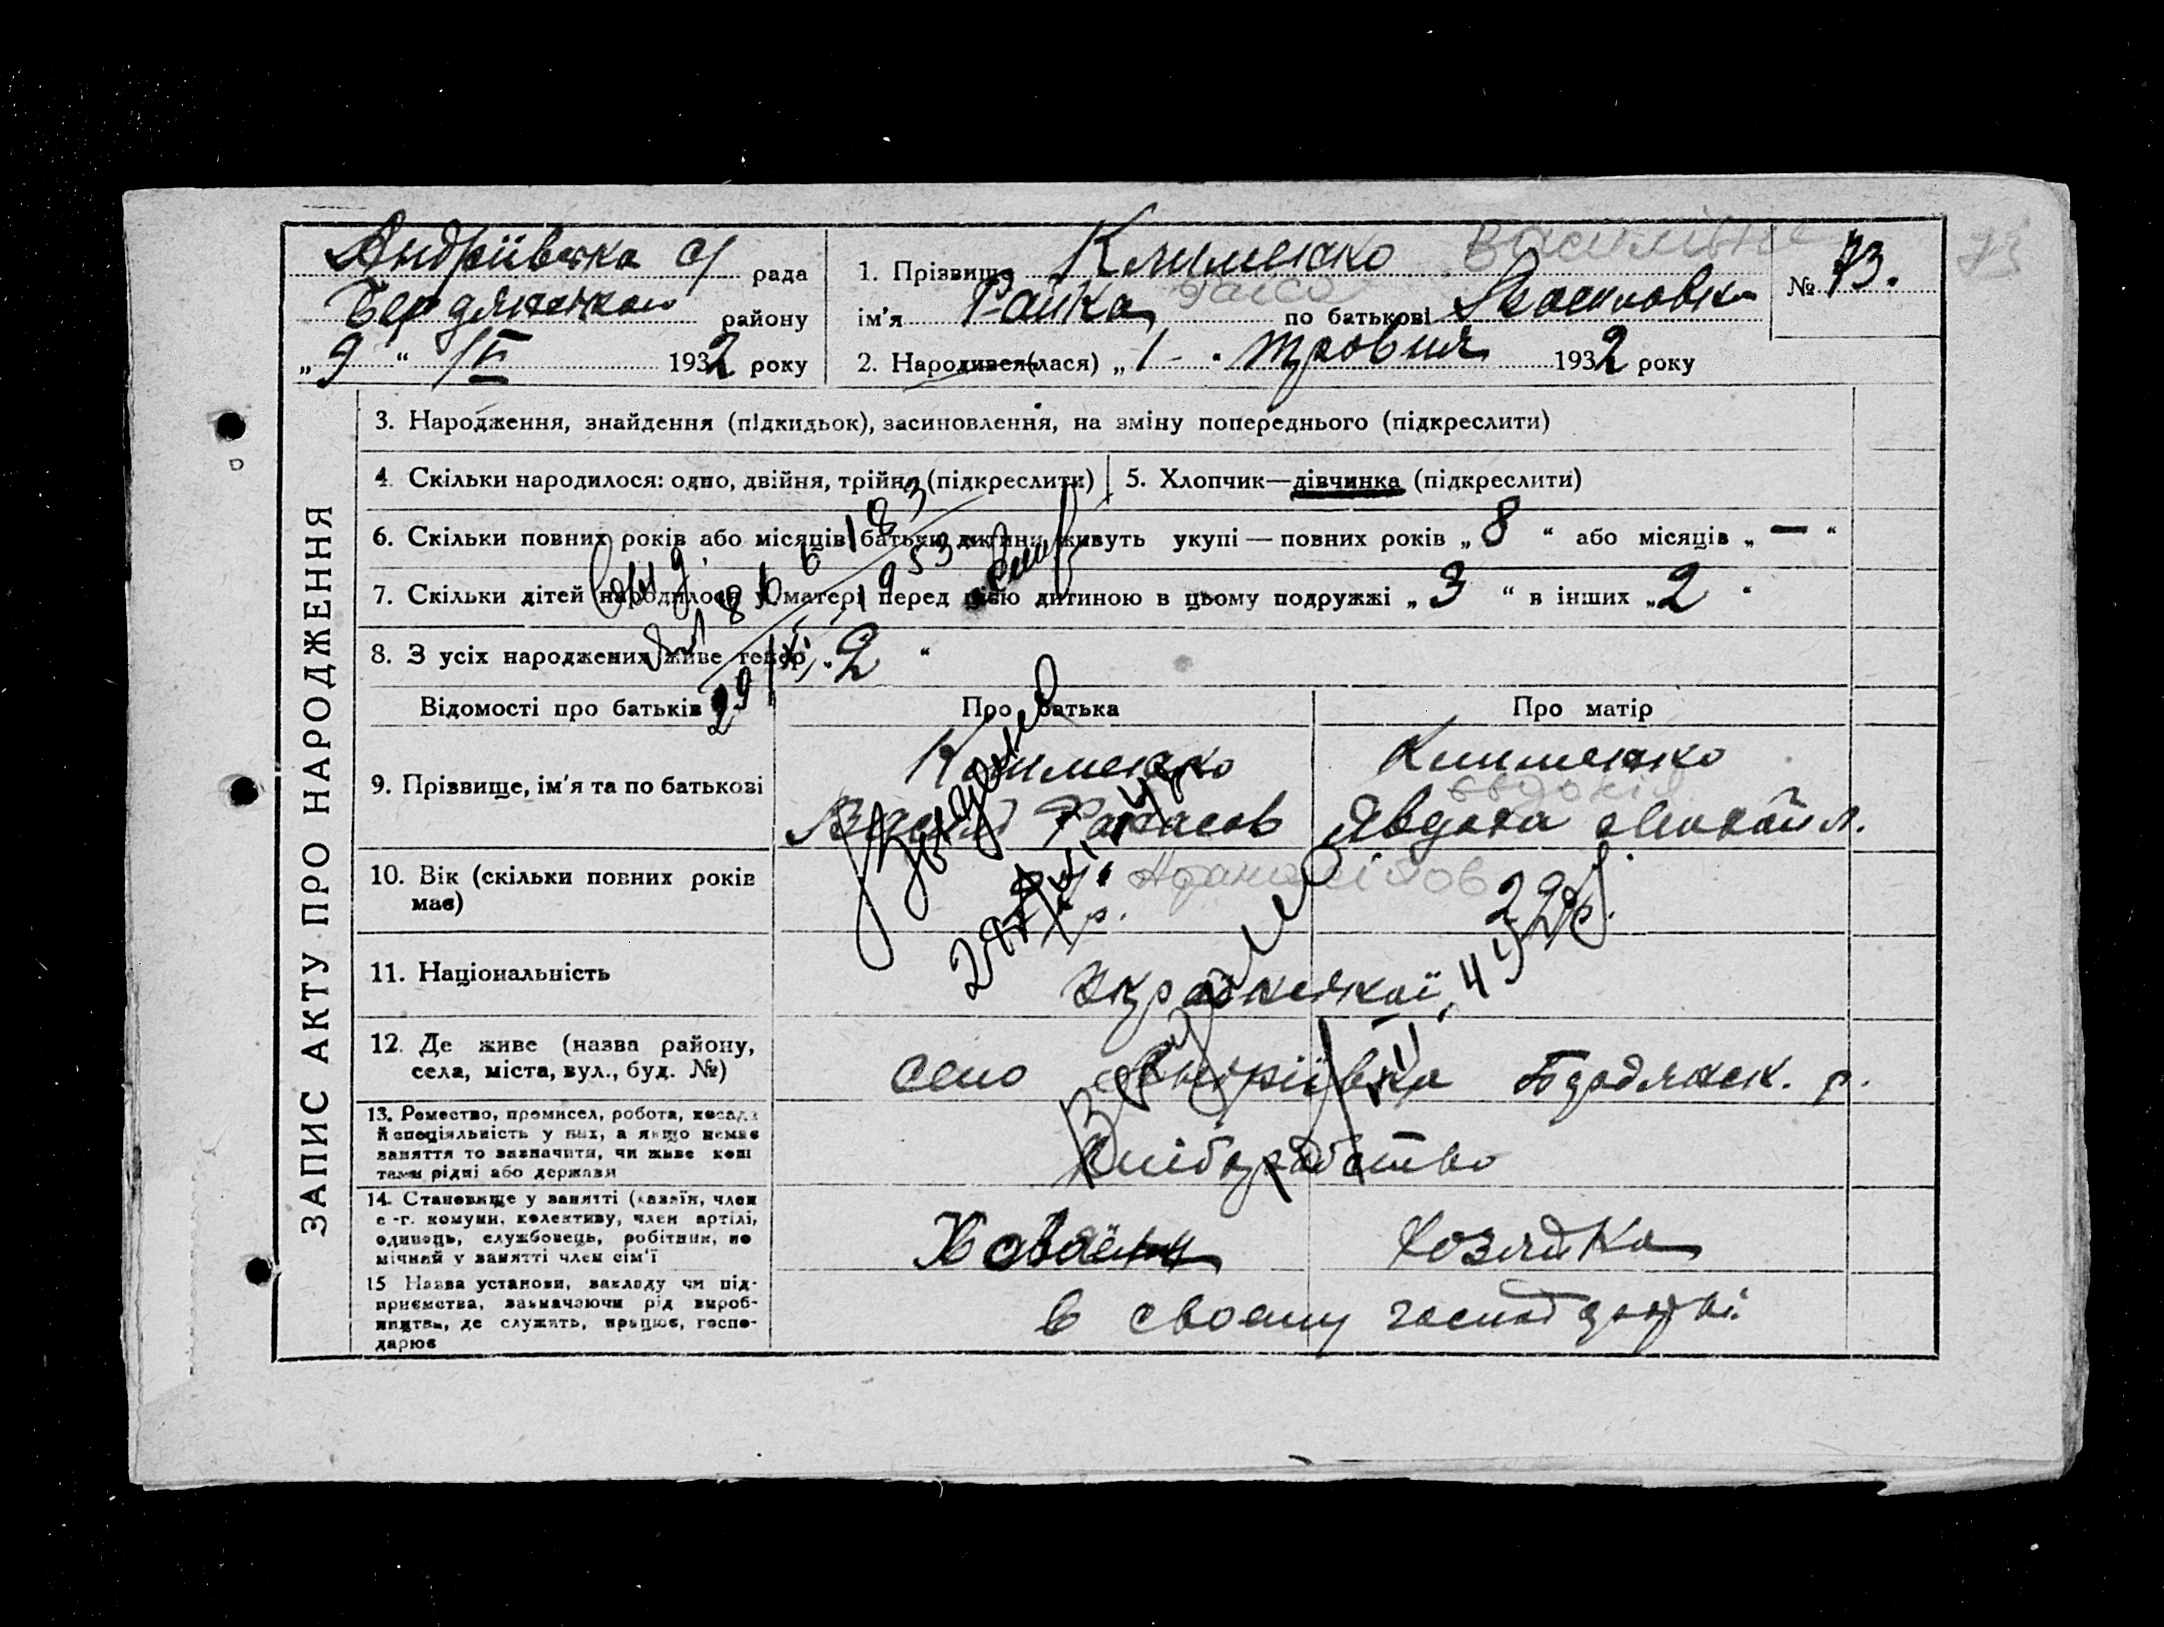 Андріївська с/ рада
Бердянського району
„9“ VI 1932 року
1. Прізвище Клименко Василівна
ім'я Райка Раїса по батькові Василовна
№ 73. 73
2. Народився(лася) „1 - “ травня 1932 року
ЗАПИС АКТУ ПРО НАРОДЖЕННЯ
3. Народження, знайдення (підкидьок), засиновлення, на зміну попереднього (підкреслити)
4. Скільки народилося: одно, двійня, трійня (підкреслити)
5. Хлопчик—дівчинка (підкреслити)
6. Скільки повних років або місяців батьки дитини живуть укупі — повних років „8“ або місяців „—“
7. Скільки дітей народилося у матері перед цією дитиною в цьому подружжі „3“ в інших „2“
8. З усіх народжених живе тепер „2“
Відомості про батьків
Про батька
Про матір
9. Прізвище, ім'я та по батькові
Клименко
Клименко
Евдокія
Явдоха Михайл.
10. Вік (скільки повних років має)
р.
29 р.
11. Національність
Української
12. Де живе (назва району, села, міста, вул., буд. №)
село Андріївка Бердянськ. р.
13. Ремество, промисел, робота, посада й спеціяльність у них, а якщо немає заняття то зазначити, чи живе коштами рідні або держави
хліборобство
14. Становище у занятті (хазяїн, член с.-г. комуни, колективу, член артілі, одинець, службовець, робітник, помічний у занятті член сім'ї
Хозяйка
15 Назва установи, закладу чи підприємства, зазначаючи рід виробництва, де служить, працює, господарює
в своєму господарстві